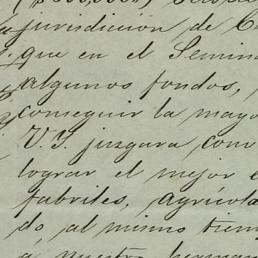 jurisdicción de
que en el Semin
algunos fondos,
conseguir la mayo
V. S. juzgara, com
lograr el mejor e
fabriles, agrícola
do al mismo tiem
a nuestro herman